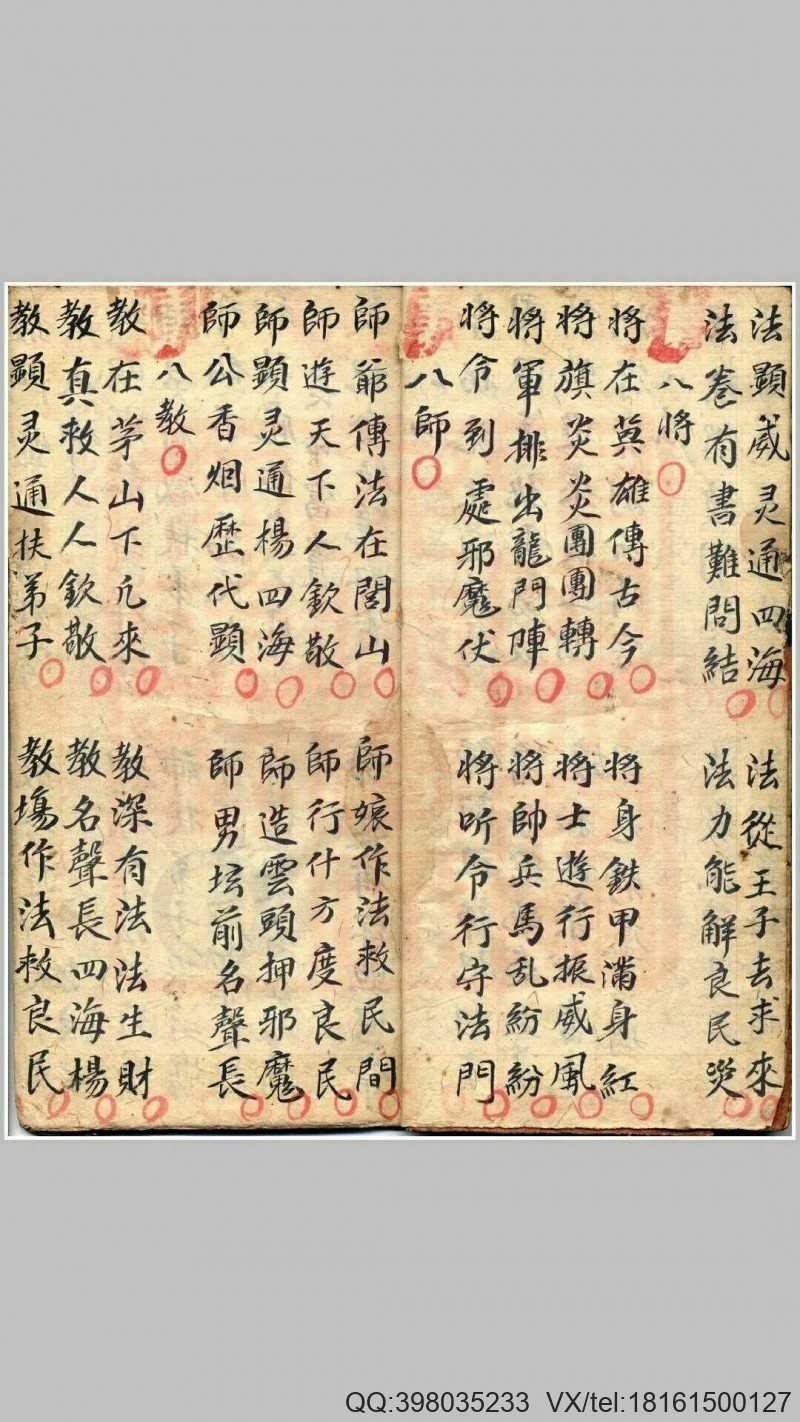 法顕威灵通四海 法從王子去求來
法卷有書難問結 法力能解良民災
八將
將在英雄傳古今 將身鉄甲滿身紅
將旗炎炎團團轉 將士遊行振威風
將軍排出龍門陣 將帥兵馬乱紛紛
將令到處邪魔伏 將听令行守法門
八師
師爺傳法在閭山 師娘作法救民間
師遊天下人欽敬 師行什方度良民
師顕灵通楊四海 師造雲頭押邪魔
師公香烟歷代顕 師男坛前名聲長
八教
教在茅山下凢來 教深有法法生財
教真救人人欽敬 教名聲長四海楊
教顕灵通扶弟子 教塲作法救良民
QQ:398035233 VX/tel:18161500127